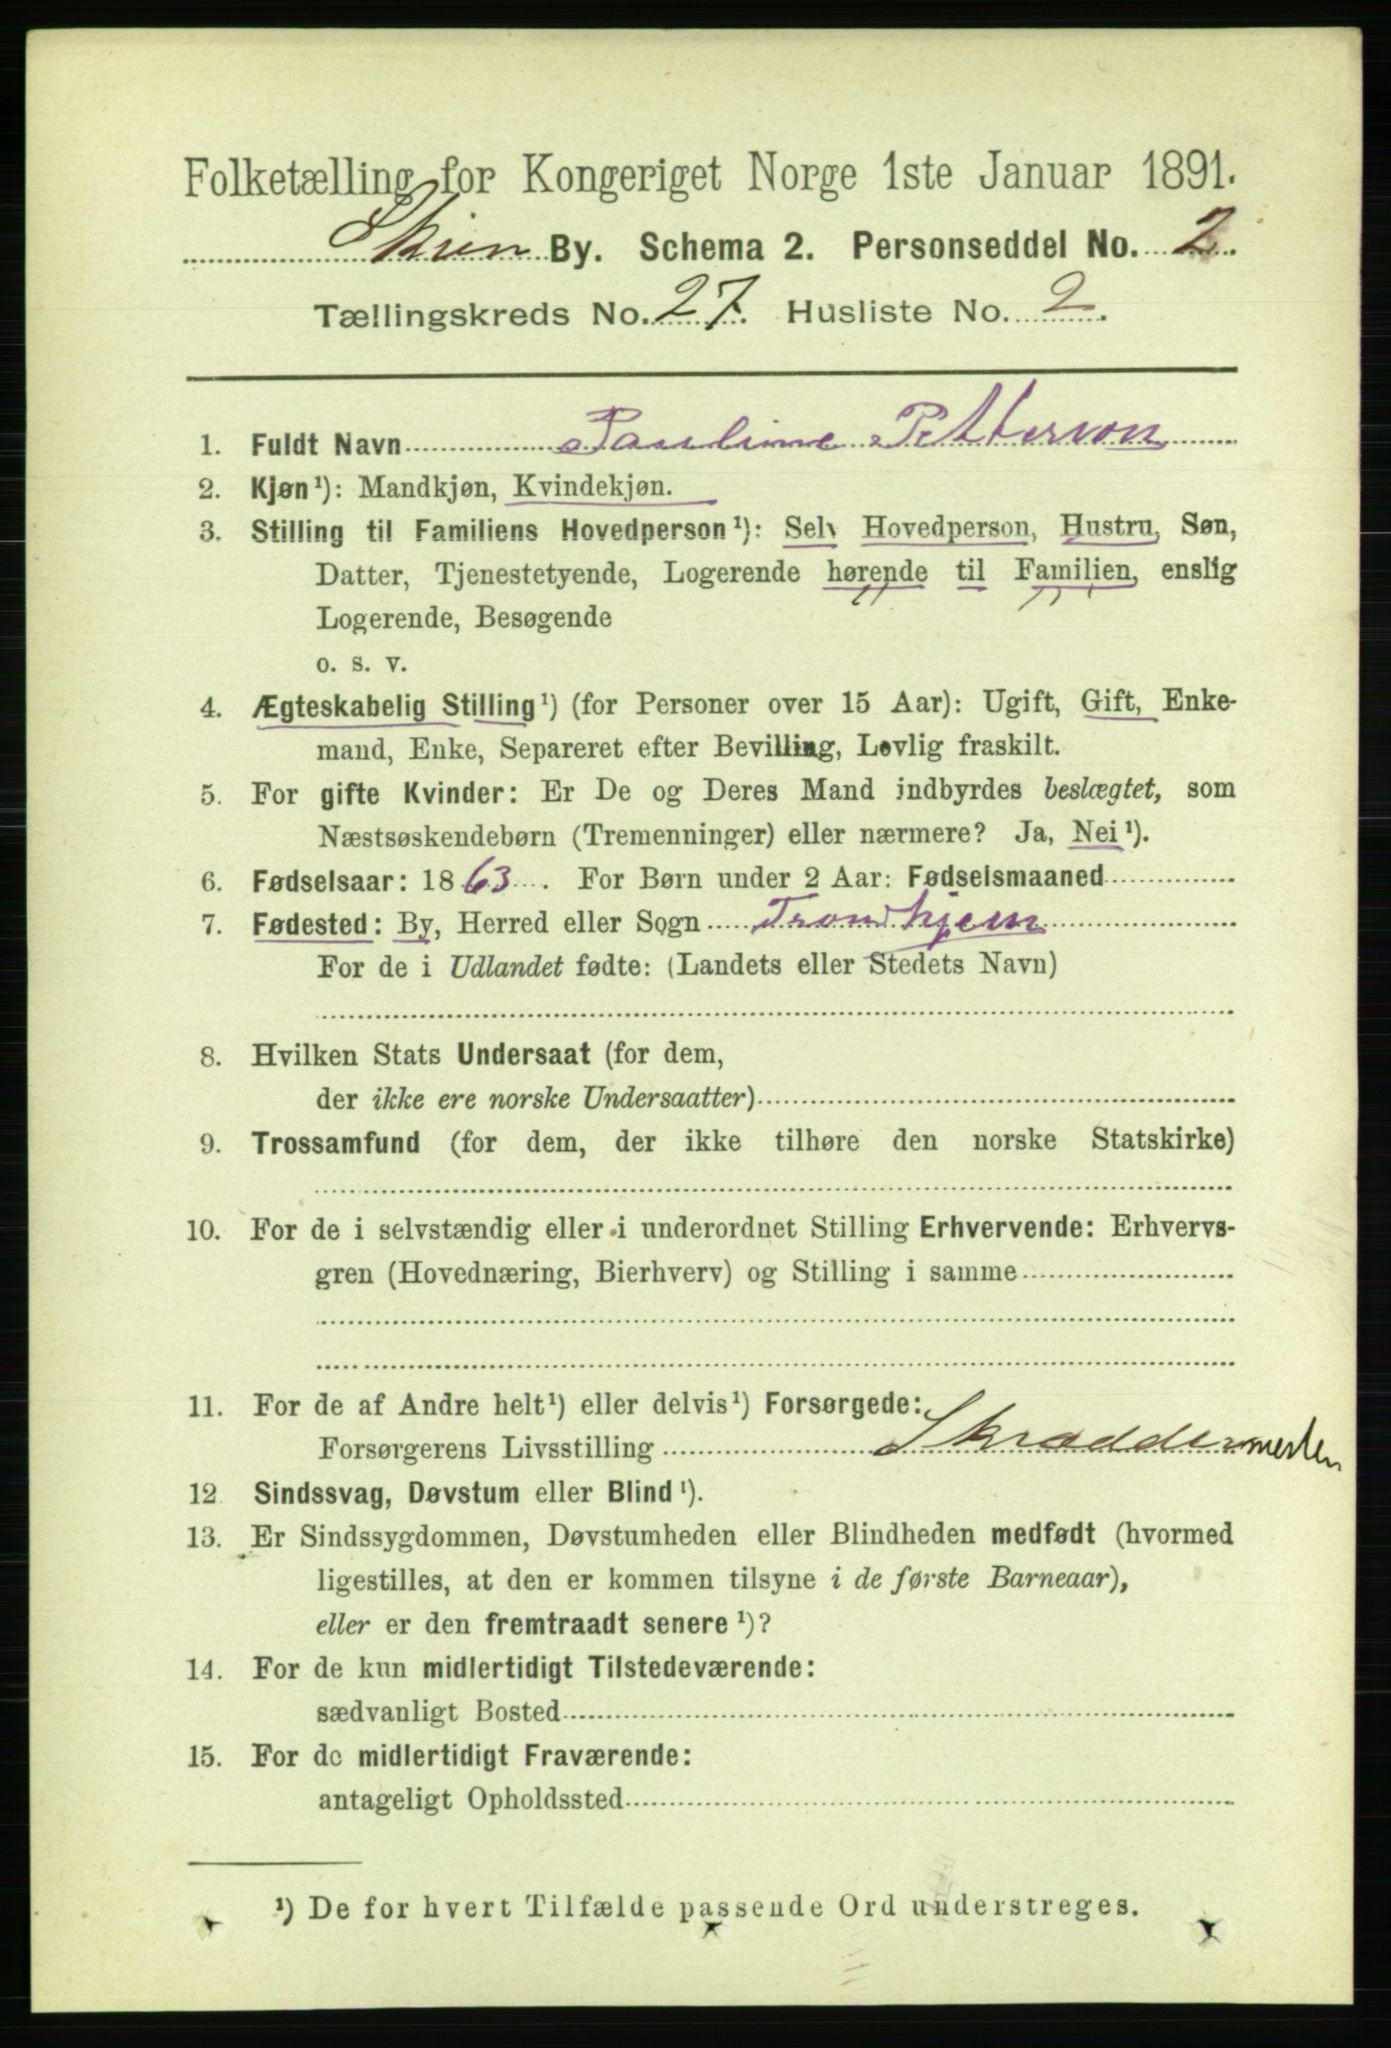 Folketælling for Kongeriget Norge 1ste Januar 1891.
Skien By. Schema 2. Personseddel No. 2.
Tællingskreds No. 27. Husliste No. 2.
1. Fuldt Navn Pauline Petterson
2. Kjøn¹): Mandkjøn, Kvindekjøn.
3. Stilling til Familiens Hovedperson¹): Selv Hovedperson, Hustru, Søn,
Datter, Tjenestetyende, Logerende hørende til Familien, enslig
Logerende, Besøgende
o. s. v.
4. Ægteskabelig Stilling¹) (for Personer over 15 Aar): Ugift, Gift, Enke-
mand, Enke, Separeret efter Bevilling, Lovlig fraskilt.
5. For gifte Kvinder: Er De og Deres Mand indbyrdes beslægtet, som
Næstsøskendebørn (Tremenninger) eller nærmere? Ja, Nei¹).
6. Fødselsaar: 1863. For Børn under 2 Aar: Fødselsmaaned
7. Fødested: By, Herred eller Sogn Trondhjem
For de i Udlandet fødte: (Landets eller Stedets Navn)
8. Hvilken Stats Undersaat (for dem,
der ikke ere norske Undersaatter)
9. Trossamfund (for dem, der ikke tilhøre den norske Statskirke)
10. For de i selvstændig eller i underordnet Stilling Erhvervende: Erhvervs-
gren (Hovednæring, Bierhverv) og Stilling i samme
11. For de af Andre helt¹) eller delvis¹) Forsørgede:
Forsørgerens Livsstilling Skræddermester
12 Sindssvag, Døvstum eller Blind¹).
13. Er Sindssygdommen, Døvstumheden eller Blindheden medfødt (hvormed
ligestilles, at den er kommen tilsyne i de første Barneaar),
eller er den fremtraadt senere¹)?
14. For de kun midlertidigt Tilstedeværende:
sædvanligt Bosted
15. For de midlertidigt Fraværende:
antageligt Opholdssted
¹) De for hvert Tilfælde passende Ord understreges.